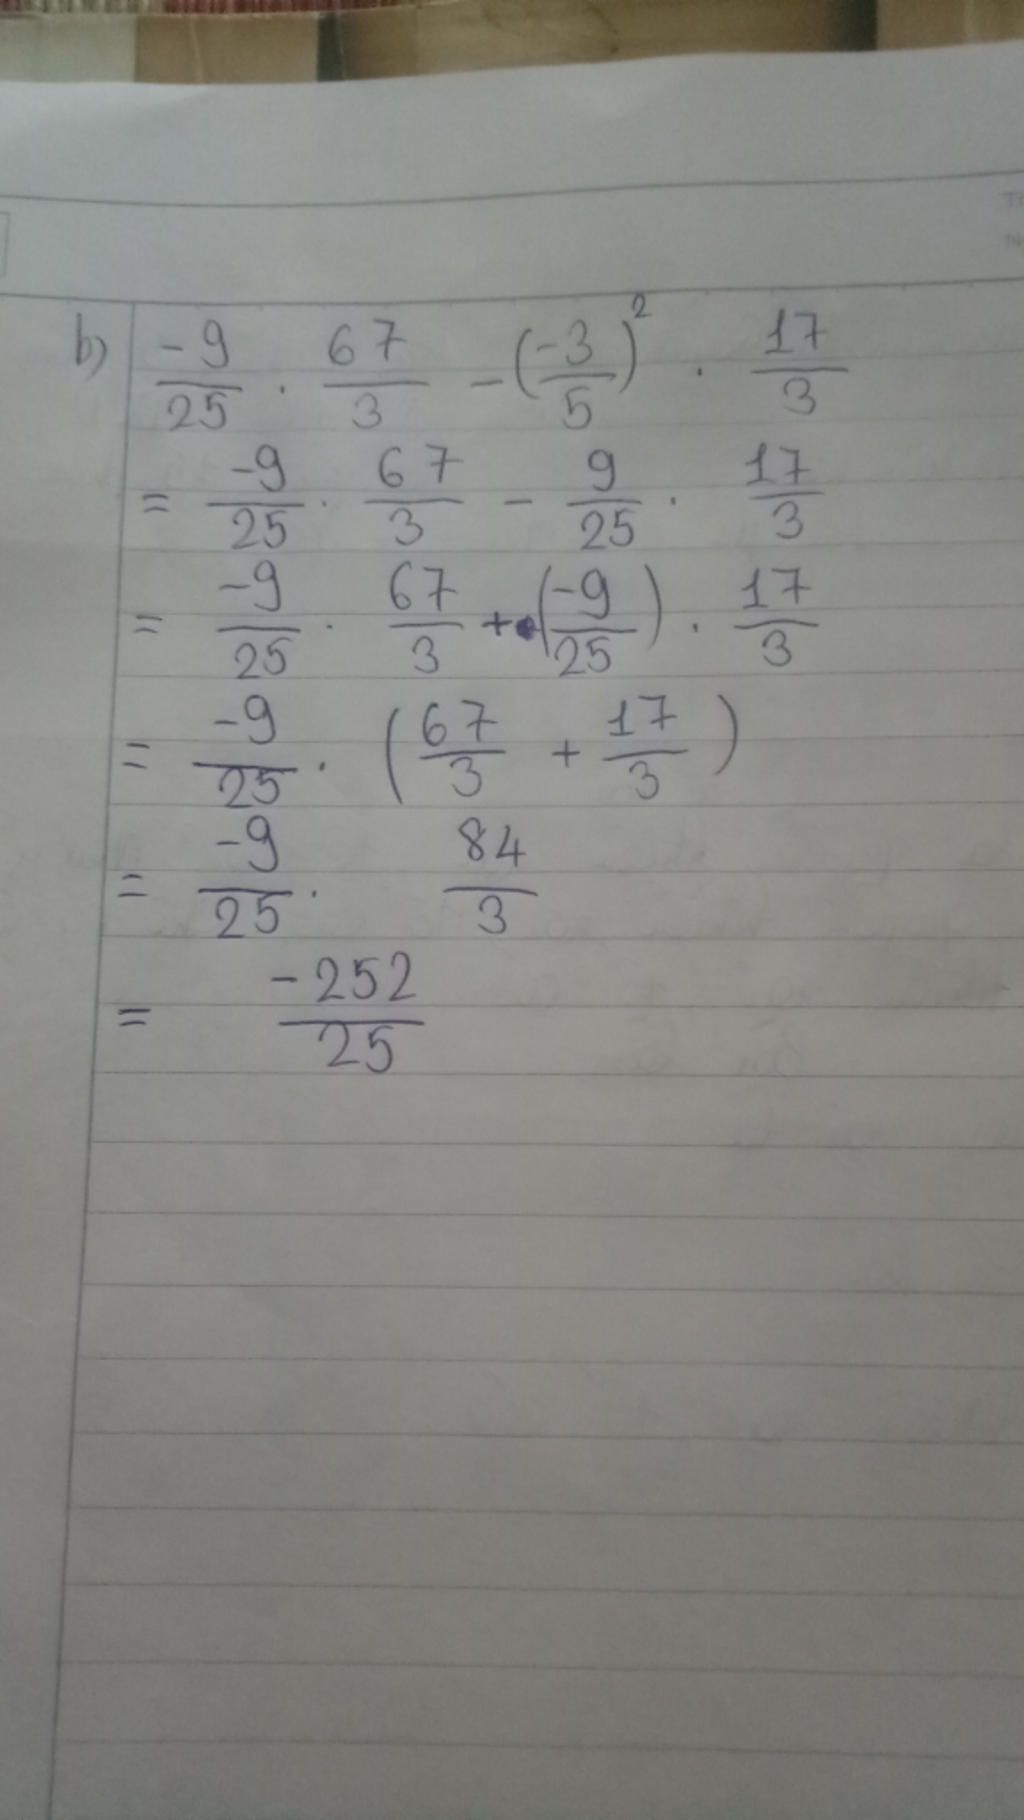 b) -9/25 . 67/3 - (-3/5)² . 17/3
= -9/25 . 67/3 - 9/25 . 17/3
= -9/25 . 67/3 + (-9/25) . 17/3
= -9/25 . (67/3 + 17/3)
= -9/25 . 84/3
= -252/25